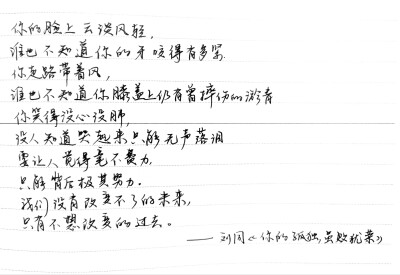 你的脸上云淡风轻,
谁也不知道你的牙咬得有多紧.
你走路带着风,
谁也不知道你膝盖上仍有曾摔伤的淤青
你笑得没心没肺,
没人知道哭起来只能无声落泪
要让人觉得毫不费力,
只能背后极其努力.
我们没有改变不了的未来,
只有不想改变的过去。
——刘同《你的孤独,虽败犹荣》